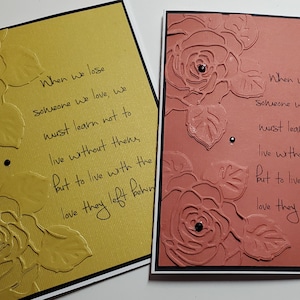 When we lose
someone we love, we
must learn not to
live without them,
but to live with the
love they left behind
When
someone we
must lear
live witho
but to live
love they l